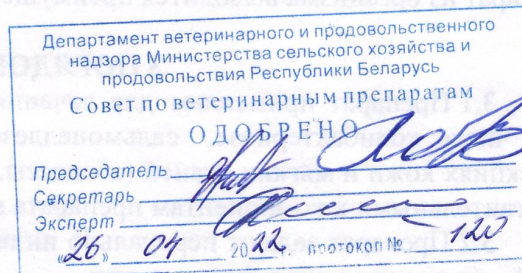 Департамент ветеринарного и продовольственного
надзора Министерства сельского хозяйства и
продовольствия Республики Беларусь
Совет по ветеринарным препаратам
ОДОБРЕНО
Председатель
Секретарь
Эксперт
«26» 04 2022 г. протокол № 120